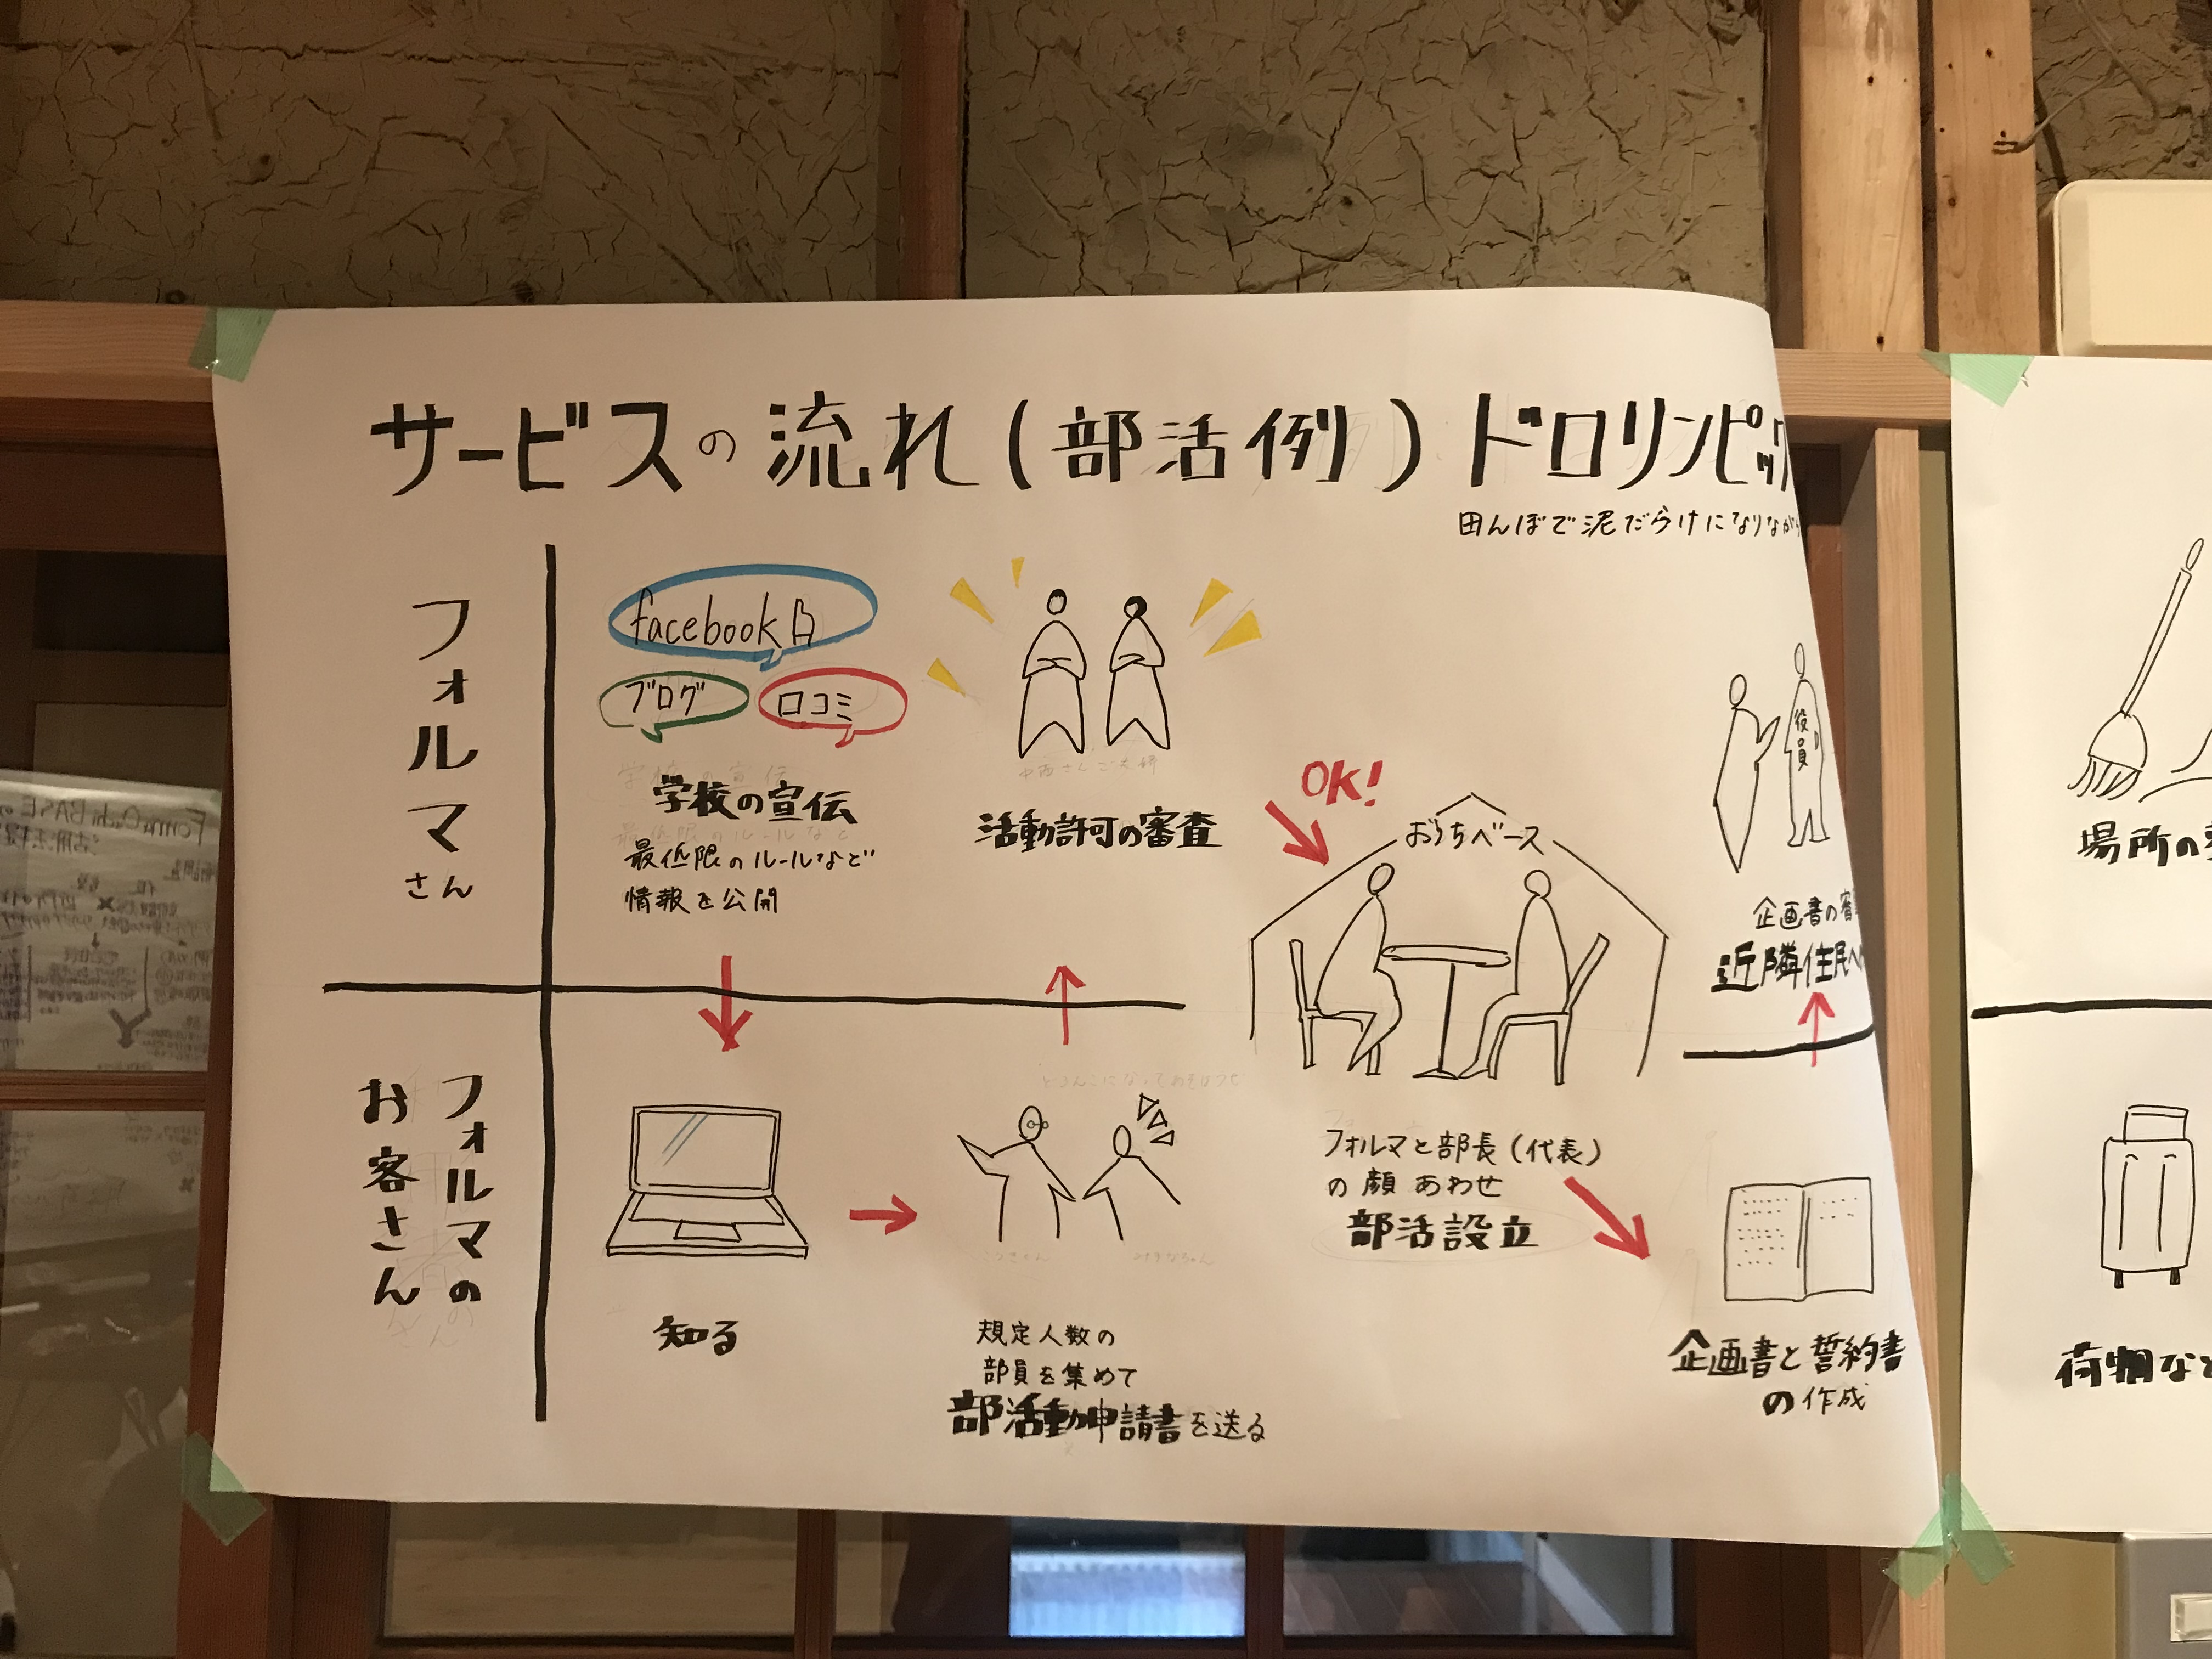 サービスの流れ(部活例)ドロリンピッ
田んぼで泥だらけになりなが
フォルマさん
facebook
ブログ
口コミ
学校の宣伝
最低限のルールなど
情報を公開
活動許可の審査
OK!
おうちベース
役員
企画書の審
近隣住民へ
場所の
フォルマの
お客さん
知る
規定人数の
部員を集めて
部活動申請書を送る
フォルマと部長(代表)
の顔あわせ
部活設立
企画書と誓約書
の作成
荷物など